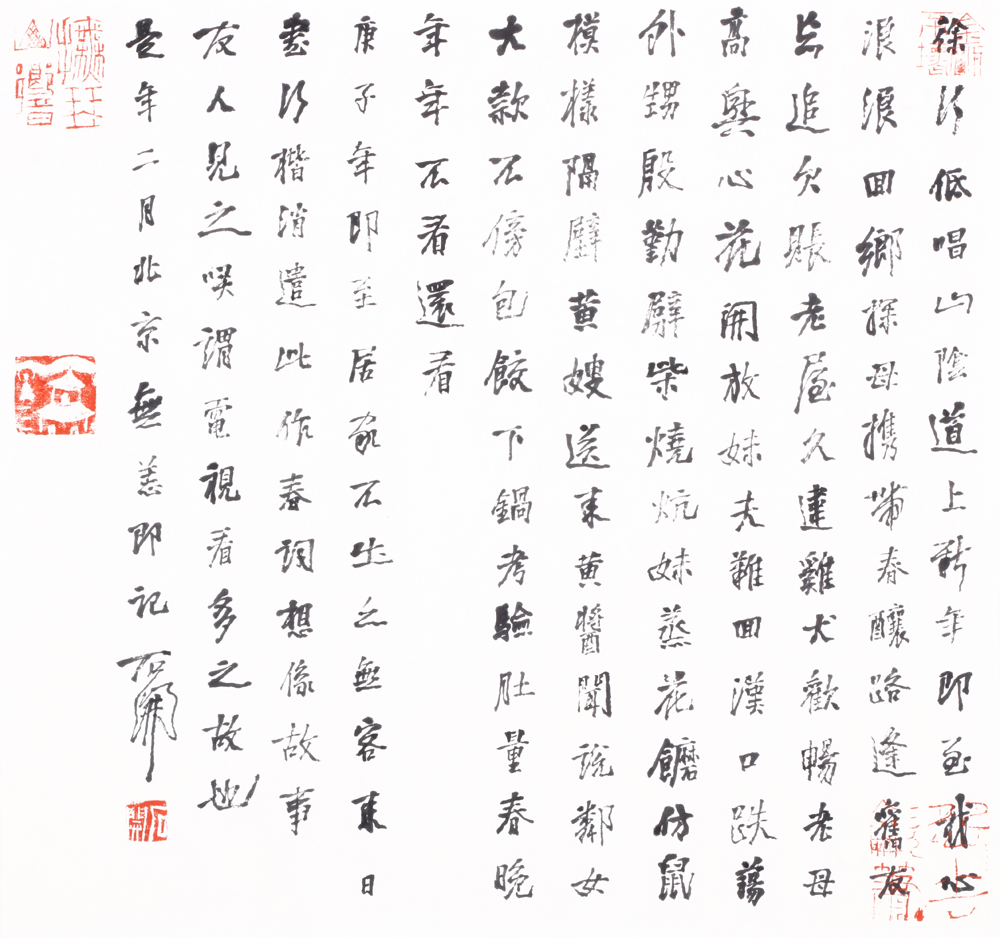 徐行低唱山陰道上新年即至我心
浪浪回鄉探母携帶春釀路逢舊友
與追欠賬老屋久違雞犬歡暢老母
高興心花開放妹夫難回漢口跌蕩
外甥殷勤劈柴燒炕妹蒸花饝仿鼠
模樣隔壁黃嫂送來黃醬聞說鄰女
大款不傍包餃下鍋考驗肚量春晚
年年不看還看
庚子年即至居家不出亦無客來日
書行楷消遣此作春詞想像故事
友人見之咲謂電視看多之故也
是年二月北京無恙即記